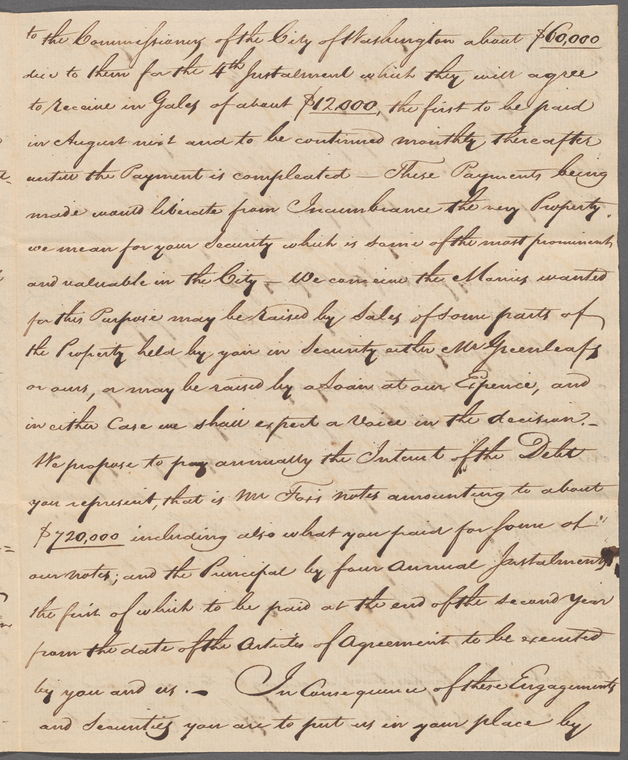 to the Commissioners of the City of Washington about $60,000
due to them for the 4th Instalment which they will agree
to receive in Gales of about $12,000, the first to be paid
in August next and to be continued monthly thereafter
untill the Payment is compleated — These Payments being
made would liberate from Incumbrance the very Property
we mean for your Security which is some of the most prominent
and valuable in the City — We conceive the Monies wanted
for this Purpose may be raised by Sales of some parts of
the Property held by you in Security either Mr Greenleafs
or ours, or may be raised by a Loan at our Expence, and
in either Case we shall expect a Voice in the decision. —
We propose to pay annually the Interest of the Debt
you represent, that is Mr Fox's notes amounting to about
$720,000 including also what you paid for some of
our notes; and the Principal by four annual Instalments
the first of which to be paid at the end of the second Year
from the date of the Articles of Agreement to be executed
by you and us. — In Consequence of these Engagements
and Securities you are to put us in your place by